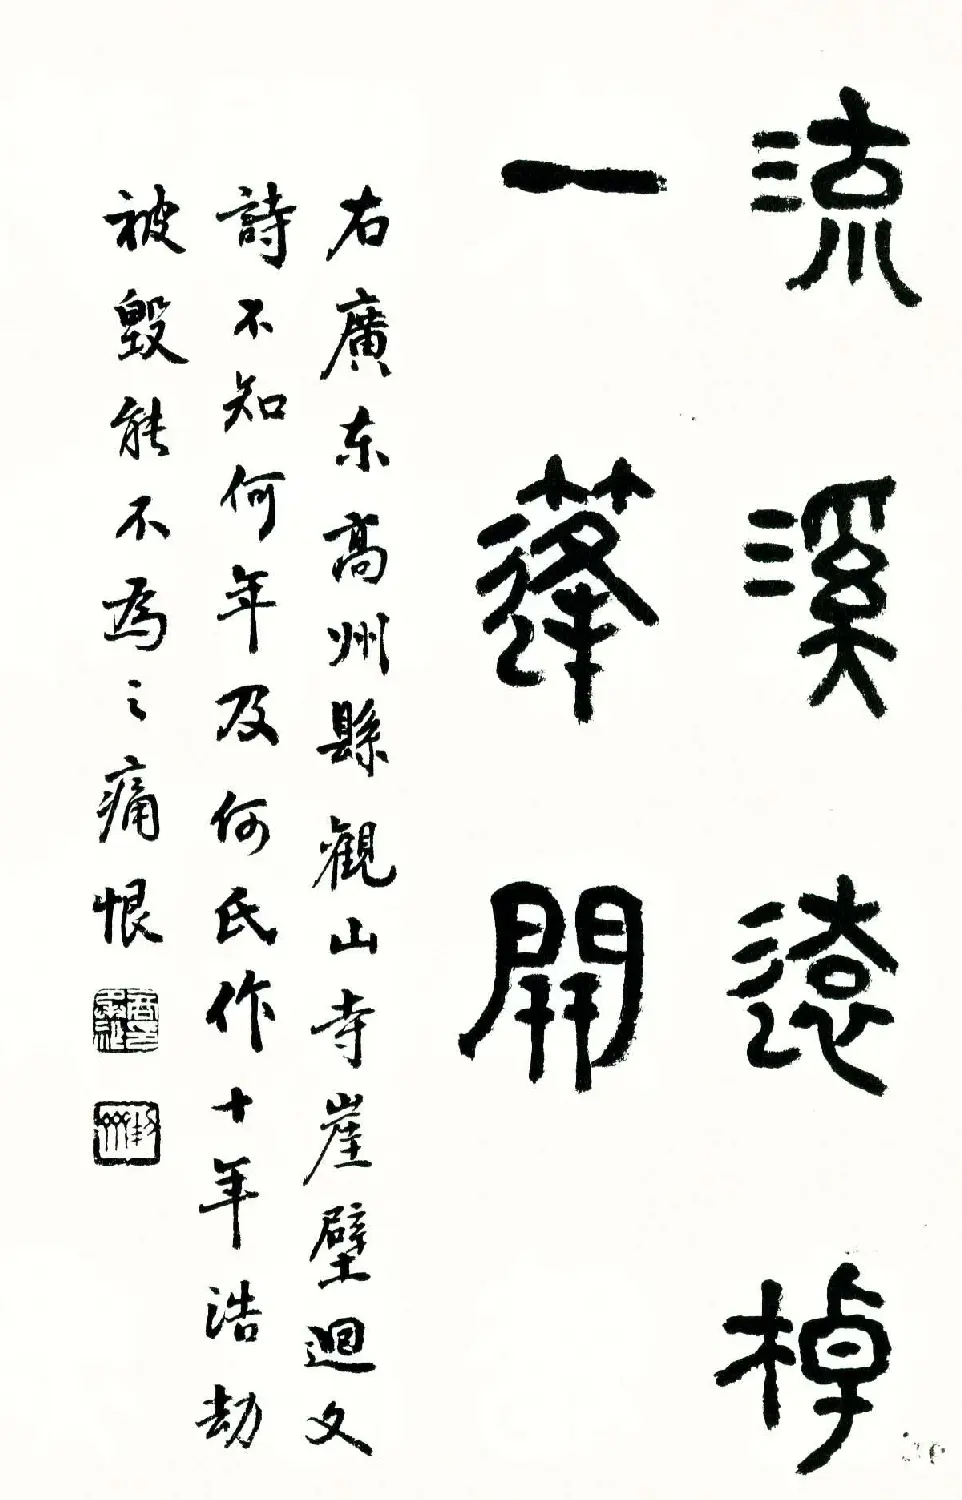 流溪遠棹
一蓬開
右廣东高州縣觀山寺崖壁迴文
詩不知何年及何氏作十年浩劫
被毀能不為之痛恨